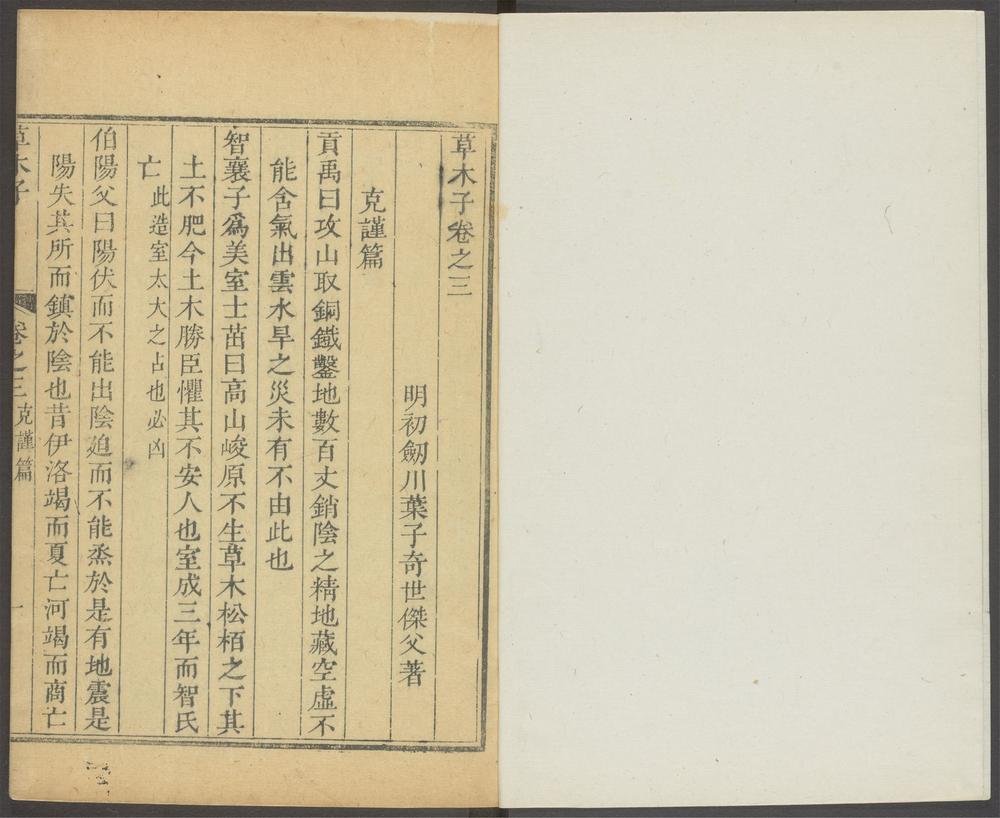 草木子卷之三
明初劒川葉子奇世傑父著
克謹篇
貢禹曰攻山取銅鐵鑿地數百丈銷陰之精地藏空虛不
能含氣出雲水旱之災未有不由此也
智襄子爲美室士茁曰高山峻原不生草木松栢之下其
土不肥今土木勝臣懼其不安人也室成三年而智氏
亡此造室太大之占也必凶
伯陽父曰陽伏而不能出陰廹而不能烝於是有地震是
陽失其所而鎮於陰也昔伊洛竭而夏亡河竭而商亡
草木子 卷之三克謹篇 一